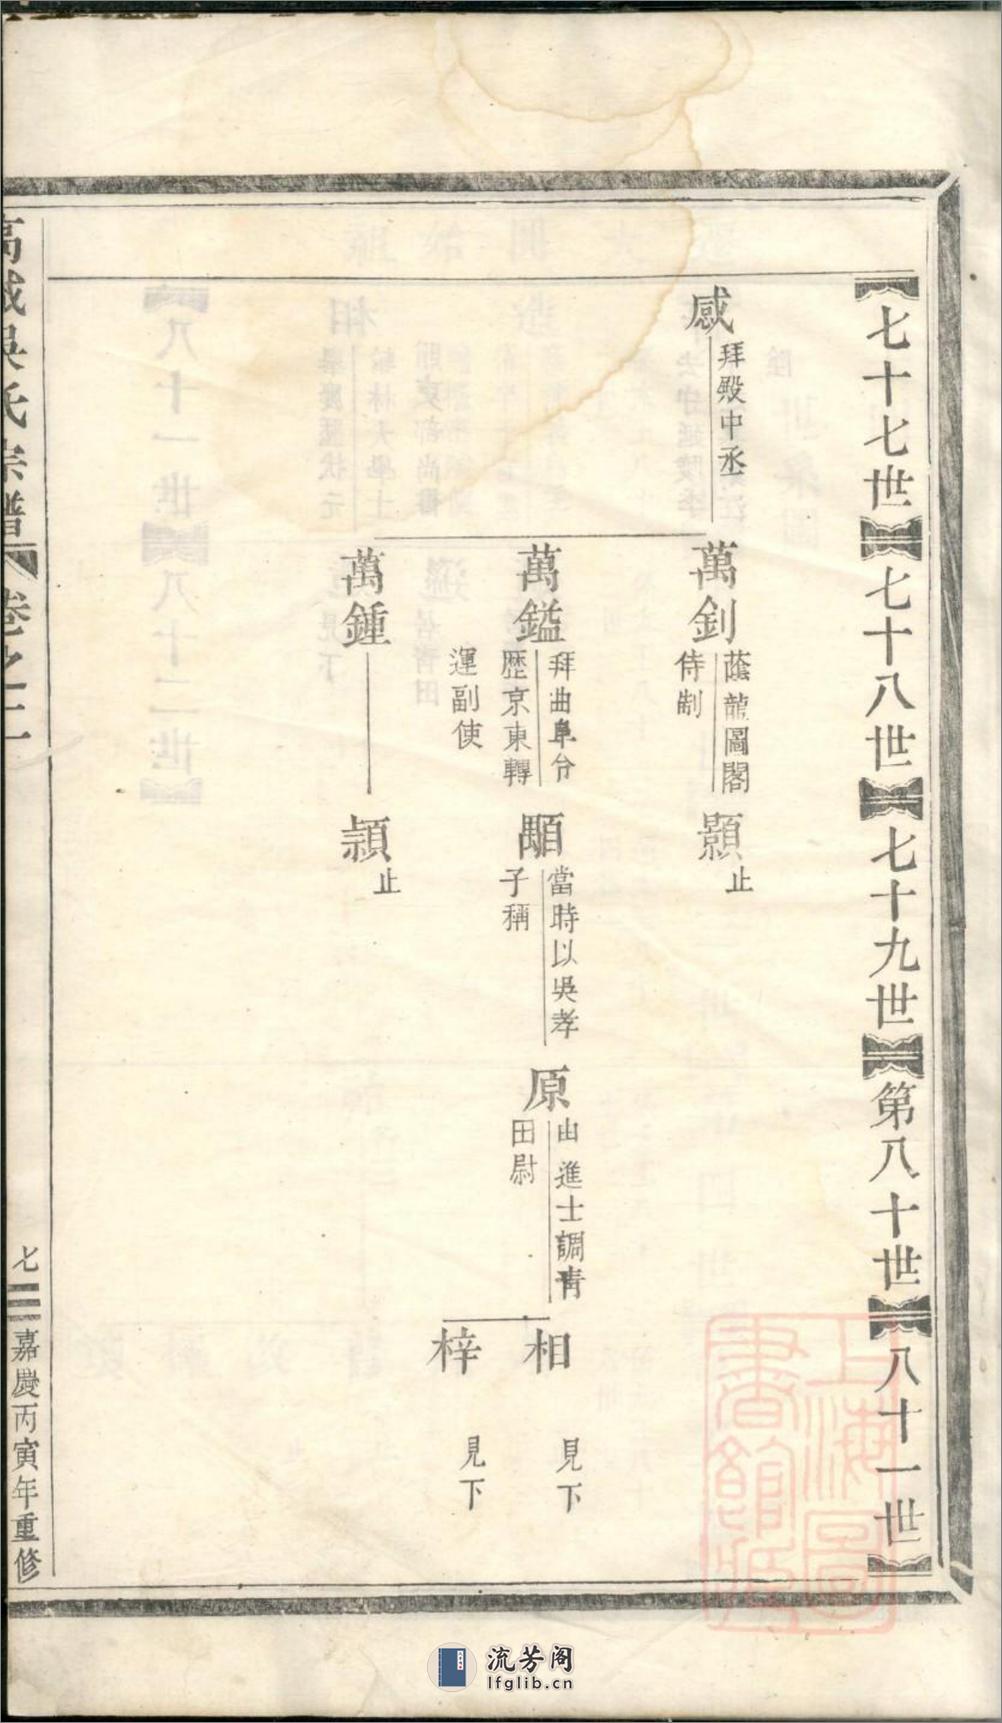 七十七世 七十八世 七十九世 第八十世 八十一世
感
拜殿中丞
萬釗
蔭龍圖閣
侍制
顥
止
萬鎰
拜曲阜分
歷京東轉
運副使
顒
當時以吳孝
子稱
原
由進士調青
田尉
相
見下
梓
見下
萬鍾
頴
止
高城吳氏宗譜 卷之二
七
嘉慶丙寅年重修
上海圖
書館藏
流芳阁
lfglib.cn